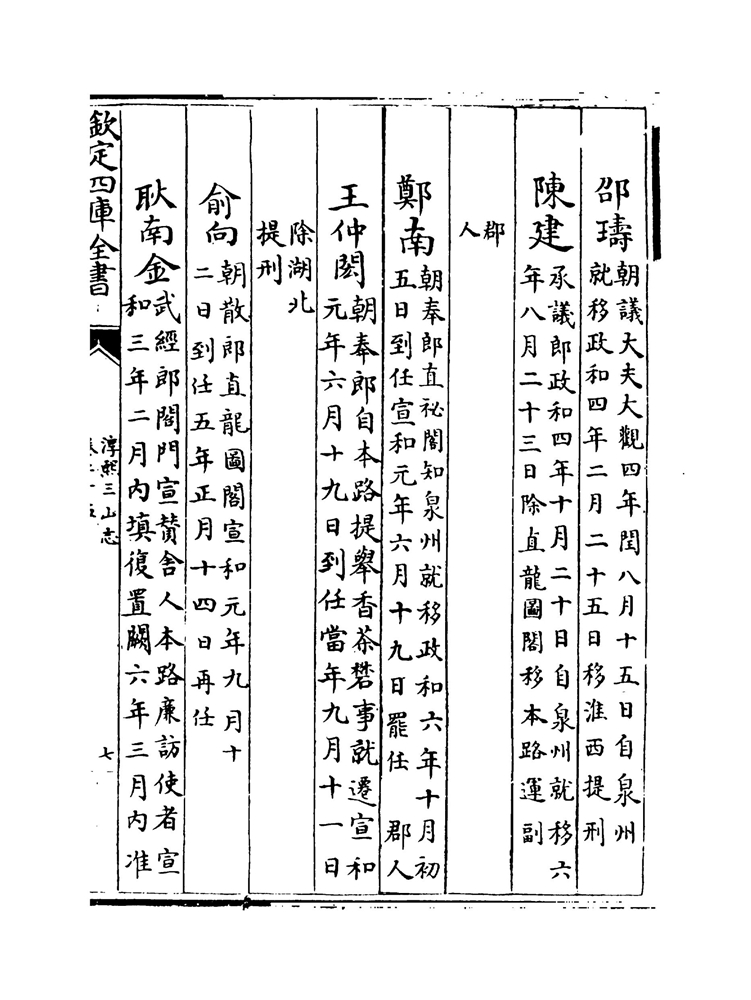 邵璹朝議大夫大觀四年閏八月十五日自泉州
就移政和四年二月二十五日移淮西提刑
陳建承議郎政和四年十月二十日自泉州就移六
年八月二十三日除直龍圖閣移本路運副
郡
人
鄭南朝奉郎直祕閣知泉州就移政和六年十月初
五日到任宣和元年六月十九日罷任 郡人
王仲閎朝奉郎自本路提舉香茶礬事就遷宣和
元年六月十九日到任當年九月十一日
除湖北
提刑
俞向朝散郎直龍圖閣宣和元年九月十
二日到任五年正月十四日再任
耿南金武經郎閣門宣贊舍人本路廉訪使者宣
和三年二月內填復置闕六年三月內准
欽定四庫全書
淳熙三山志
七